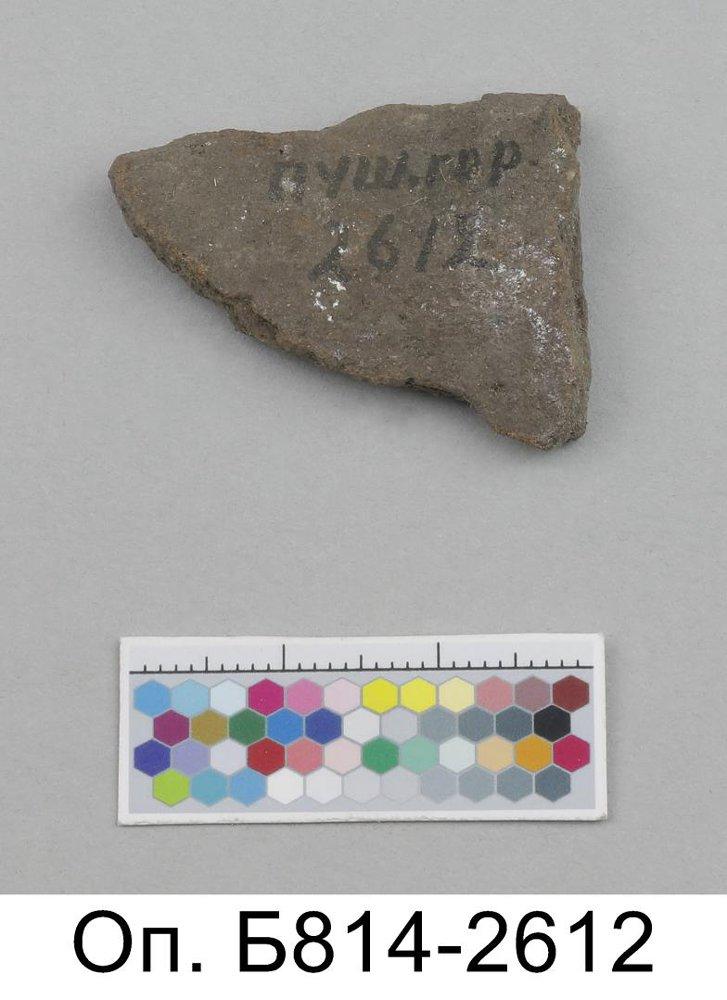 пуш.гор
2612
Оп. Б814-2612